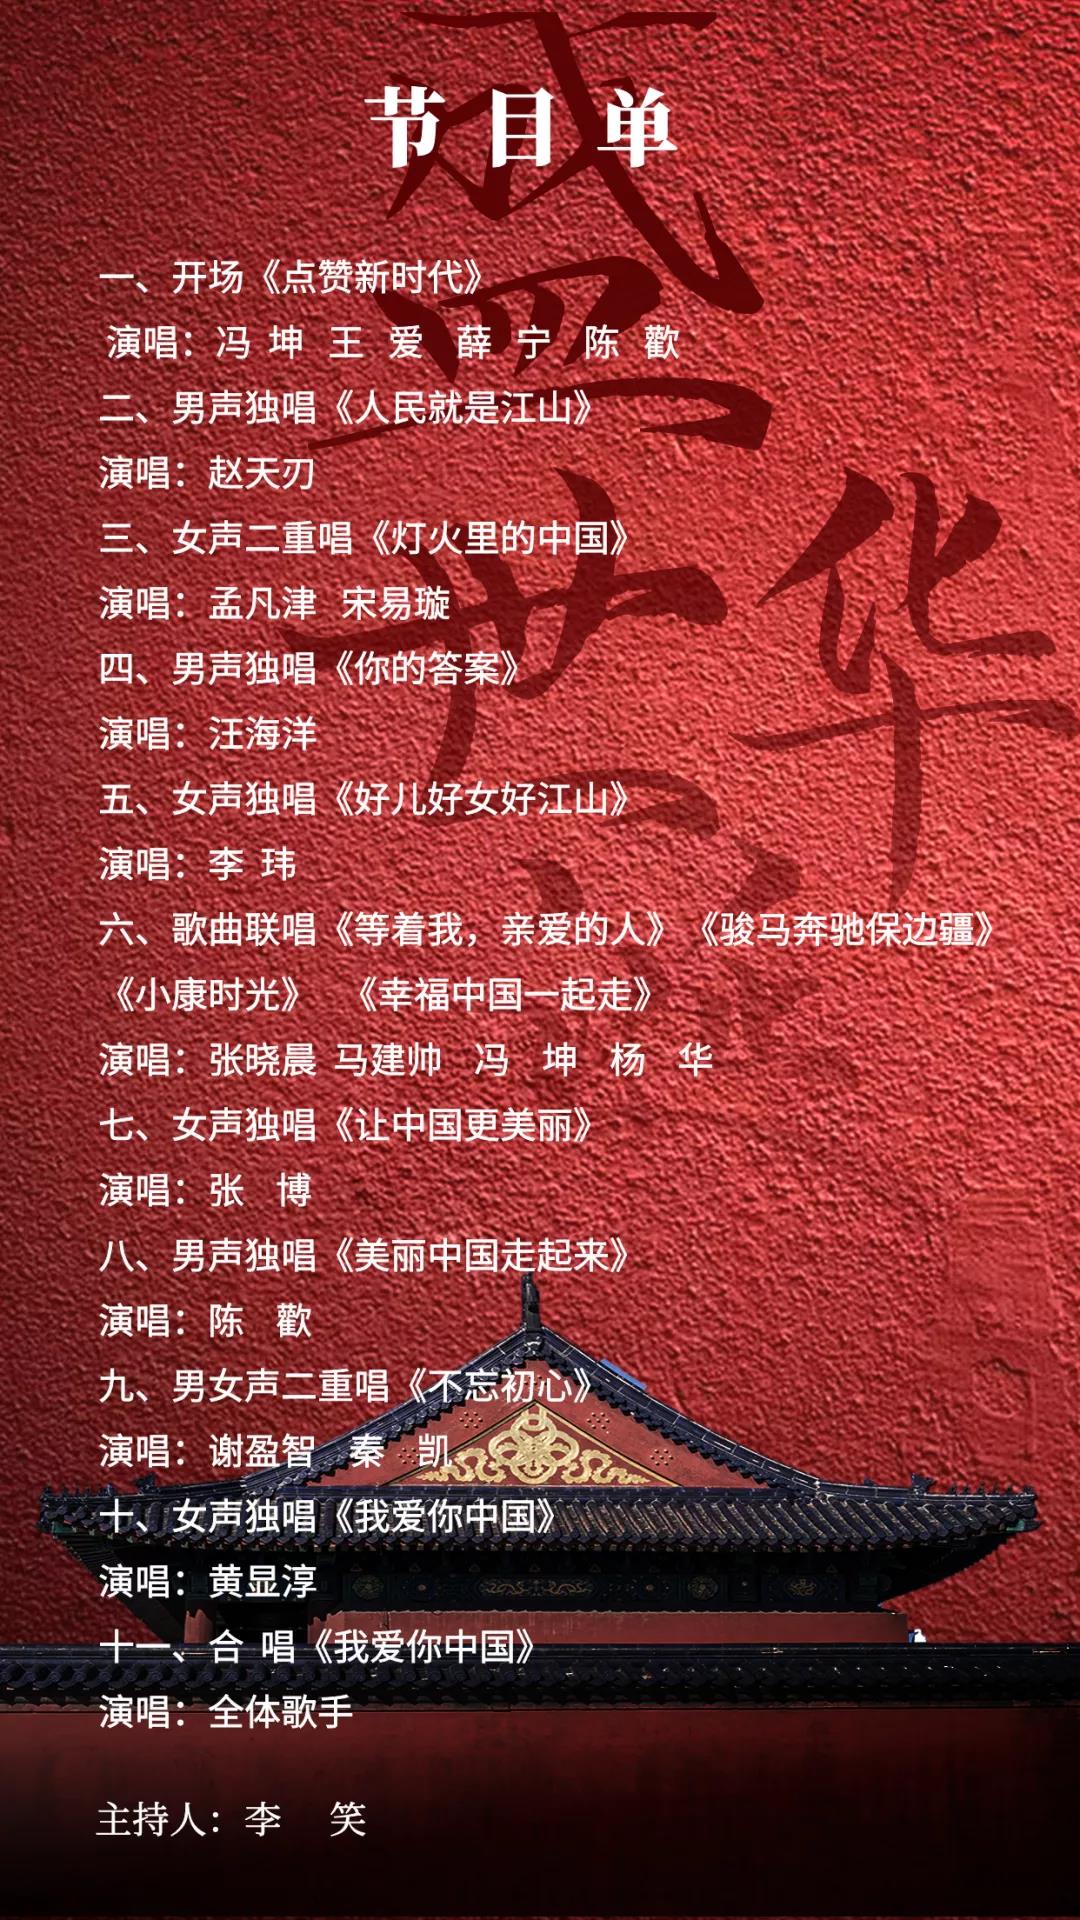 节目单
一、开场《点赞新时代》
演唱：冯 坤 王 爱 薛 宁 陈 歡
二、男声独唱《人民就是江山》
演唱：赵天刃
三、女声二重唱《灯火里的中国》
演唱：孟凡津 宋易璇
四、男声独唱《你的答案》
演唱：汪海洋
五、女声独唱《好儿好女好江山》
演唱：李 玮
六、歌曲联唱《等着我，亲爱的人》《骏马奔驰保边疆》
《小康时光》 《幸福中国一起走》
演唱：张晓晨 马建帅 冯 坤 杨 华
七、女声独唱《让中国更美丽》
演唱：张 博
八、男声独唱《美丽中国走起来》
演唱：陈 歡
九、男女声二重唱《不忘初心》
演唱：谢盈智 秦 凯
十、女声独唱《我爱你中国》
演唱：黄显淳
十一、合 唱《我爱你中国》
演唱：全体歌手
主持人：李 笑
盛世
华